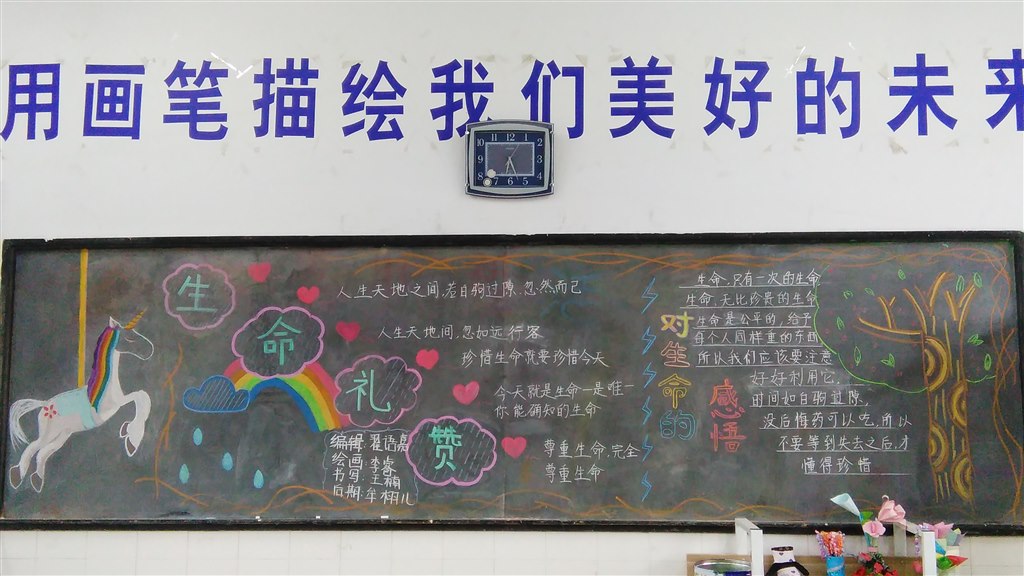 用画笔描绘我们美好的未来
10 11 12 1 2 3 4 5 6 7 8 9
生命礼赞
人生天地之间,若白驹过隙,忽然而已
人生天地间,忽如远行客
珍惜生命就要珍惜今天
今天就是生命一是唯一
你能确知的生命
尊重生命,完全
尊重生命
编辑:
绘画:李
书写:王楠
后期:牟栩儿
对生命的
感悟
生命,只有一次的生命
生命,无比珍贵的生命
生命是公平的,给予
每个人同样重的东西
所以我们应该要注意
好好利用它.
时间如白驹过隙,
没后悔药可以吃,所以
不要等到失去之后,才
懂得珍惜